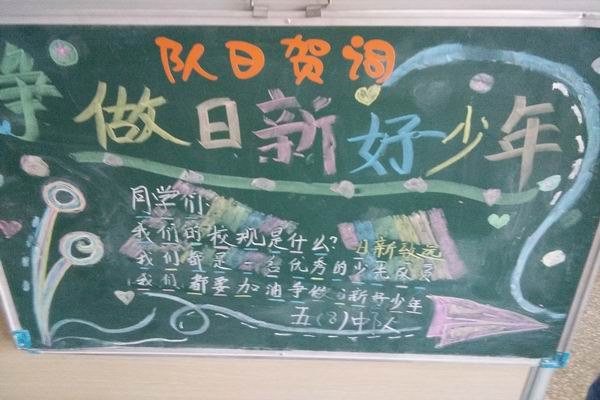 队日贺词
争做日新好少年
同学们:
我们的校规是什么?日新致远
我们都是一名优秀的少先队员
我们都要加油争做日新好少年
五(8)中队